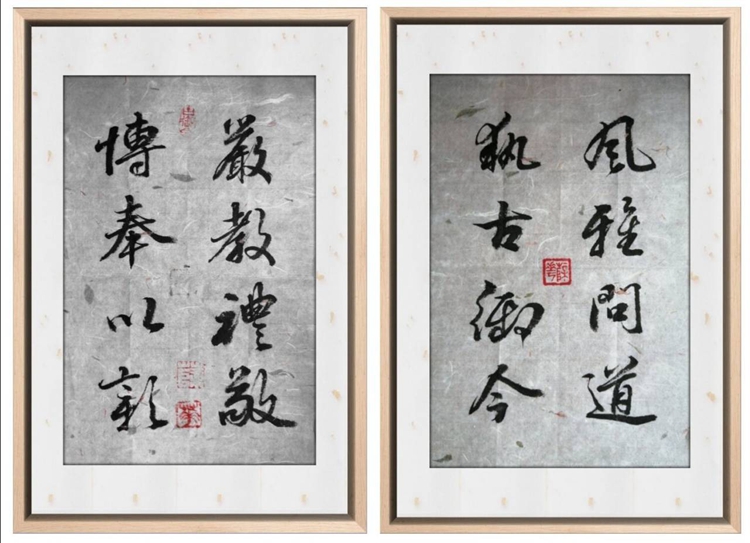 風雅問道
執古御今
嚴教禮敬
博奉以